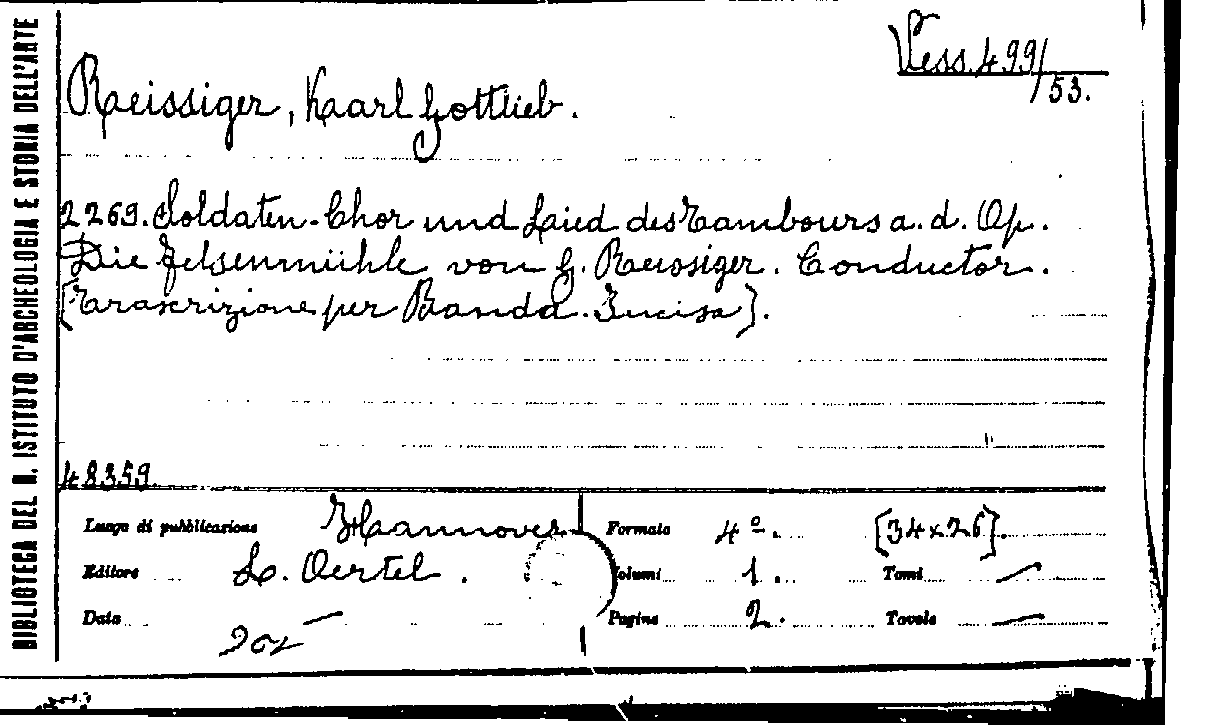 BIBLIOTECA DEL R. ISTITUTO D'ARCHEOLOGIA E STORIA DELL'ARTE
Vess. 499/53.
Raeissiger, Kaarl Gottlieb.
2269. Soldaten-Chor und Laied des Tambours a. d. Op.
Die Felsenmühle von G. Raeissiger. Conductor.
[Trascrizione per Banda. Incisa].
48359.
Luogo di pubblicazione Hannover
Formato 4º. [34x26].
Editore L. Oertel.
Volumi 1. Tomi —
Data —
Pagine 2. Tavole —